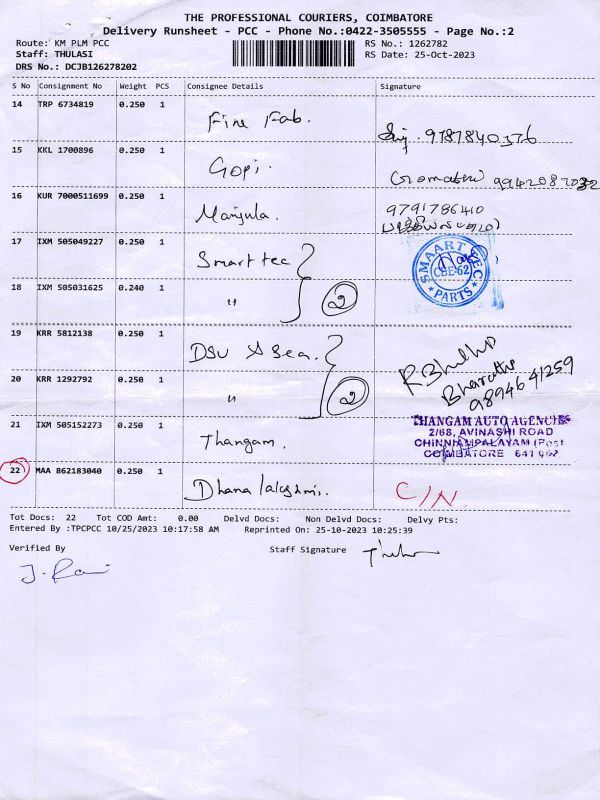 THE PROFESSIONAL COURIERS, COIMBATORE
Delivery Runsheet - PCC - Phone No.:0422-3505555 - Page No.:2
Route: KM PLM PCC
RS No.: 1262782
Staff: THULASI
RS Date: 25-Oct-2023
DRS No.: DCJB126278202
S No Consignment No Weight PCS Consignee Details Signature
14 TRP 6734819 0.250 1 Fine Fab. 9787840376
15 KKL 1700896 0.250 1 Gopi. Gomathi
16 KUR 7000511699 0.250 1 Manjula. 9791786410
17 IXM 505049227 0.250 1 Smart tec
SMAART TEC
CBE-62
* PARTS *
18 IXM 505031625 0.240 1 " 2
19 KRR 5812138 0.250 1 DSV
20 KRR 1292792 0.250 1 " 2
Bharathi
9894641259
21 IXM 505152273 0.250 1 Thangam.
THANGAM AUTO AGENCIES
2/68, AVINASHI ROAD
CHINNIAMPALAYAM (Post
COIMBATORE 641 062
22 MAA 862183040 0.250 1 Dhanalakshmi. C/N.
Tot Docs: 22 Tot COD Amt: 0.00 Delvd Docs: Non Delvd Docs: Delvy Pts:
Entered By :TPCPCC 10/25/2023 10:17:58 AM Reprinted On: 25-10-2023 10:25:39
Verified By
Staff Signature
J. Rani